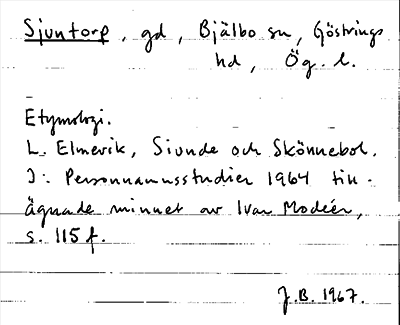 Sjuntorp, gd, Bjälbo sn, Göstrings
hd, Ög. l.
Etymologi.
L. Elmevik, Siunde och Skönnebol.
I: Personnamnsstudier 1964 till-
ägnade minnet av Ivar Modéer,
s. 115 f.
J.B. 1967.